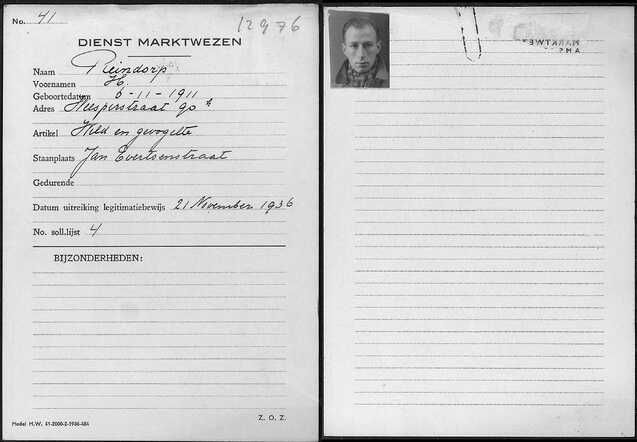 No. 41
12976
DIENST MARKTWEZEN
Naam Reindorp
Voornamen H.
Geboortedatum 6-11-1911
Adres Weesperstraat 90
Artikel Wild en gevogelte
Staanplaats Jan Evertsenstraat
Gedurende
Datum uitreiking legitimatiebewijs 21 November 1936
No. soll.lijst 4
BIJZONDERHEDEN:
Z. O. Z.
Model M.W. 41-2000-2-1936-484
MARKTWE
AMS